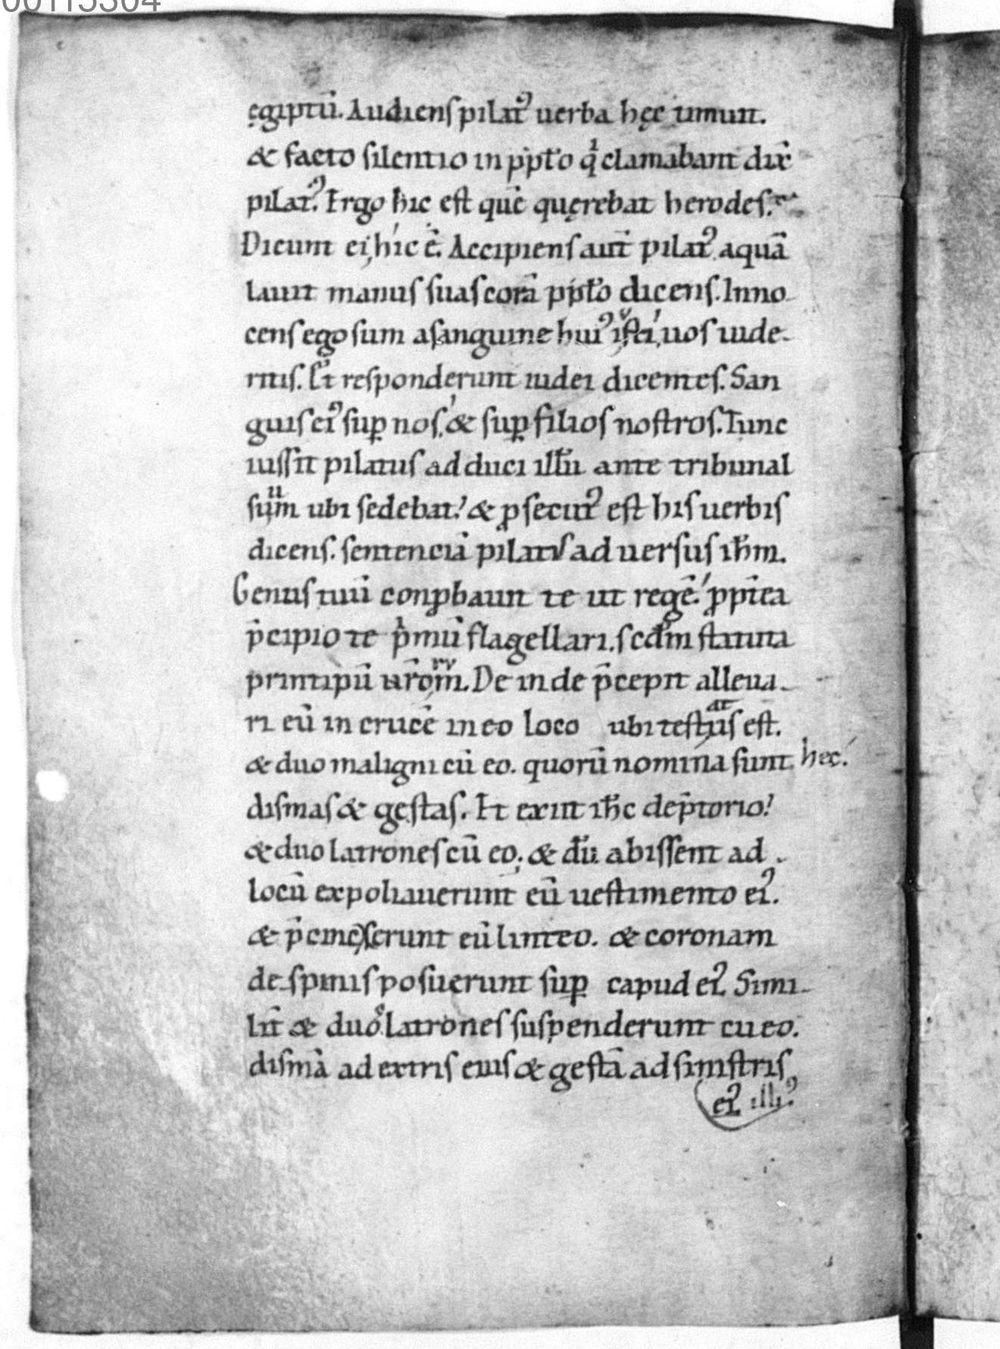 00115304
ęgiptū. Audiens pilat᷒ uerba hęc timuit.
& facto silentio in pp̄lo q̇ clamabant dix̄
pilat᷒. Ergo hic est quē quęrebat herodes.
Dicunt ei, hic ē. Accipiens aut̄ pilat᷒ aquā
lauit manus suas corā pp̄lo dicens. Inno
cens ego sum a sanguine hui᷒ iusti, uos uide
ritis. Et responderunt iudei dicentes. San
guis ei᷒ sup nos, & sup filios nostros. Tunc
iussit pilatus adduci ill̄m ante tribunal
suum ubi sedebat. & p̱secut᷒ est his uerbis
dicens. sentenciā pilatus aduersus ih̄m.
Genus tuū conp̱bauit te ut regē. p̱pt̄ea
p̄cipio te ṗmū flagellari. scd̄m statuta
principū ur̄orum. Deinde p̄cepit alleua
ri eū in crucē in eo loco ubi testatus est.
& duo maligni cū eo. quorū nomina sunt hęc.
dismas & gestas. Et exiit ih̄c de p̄torio.
& duo latrones cū eo. & dū abissent ad
locū expoliauerunt eū uestimento ei᷒.
& p̄cinxerunt eū linteo. & coronam
de spinis posuerunt sup capud ei᷒. Simi
lit̄ & duos latrones suspenderunt cū eo.
dismā ad extris eius & gestā ad sinistris
ei᷒